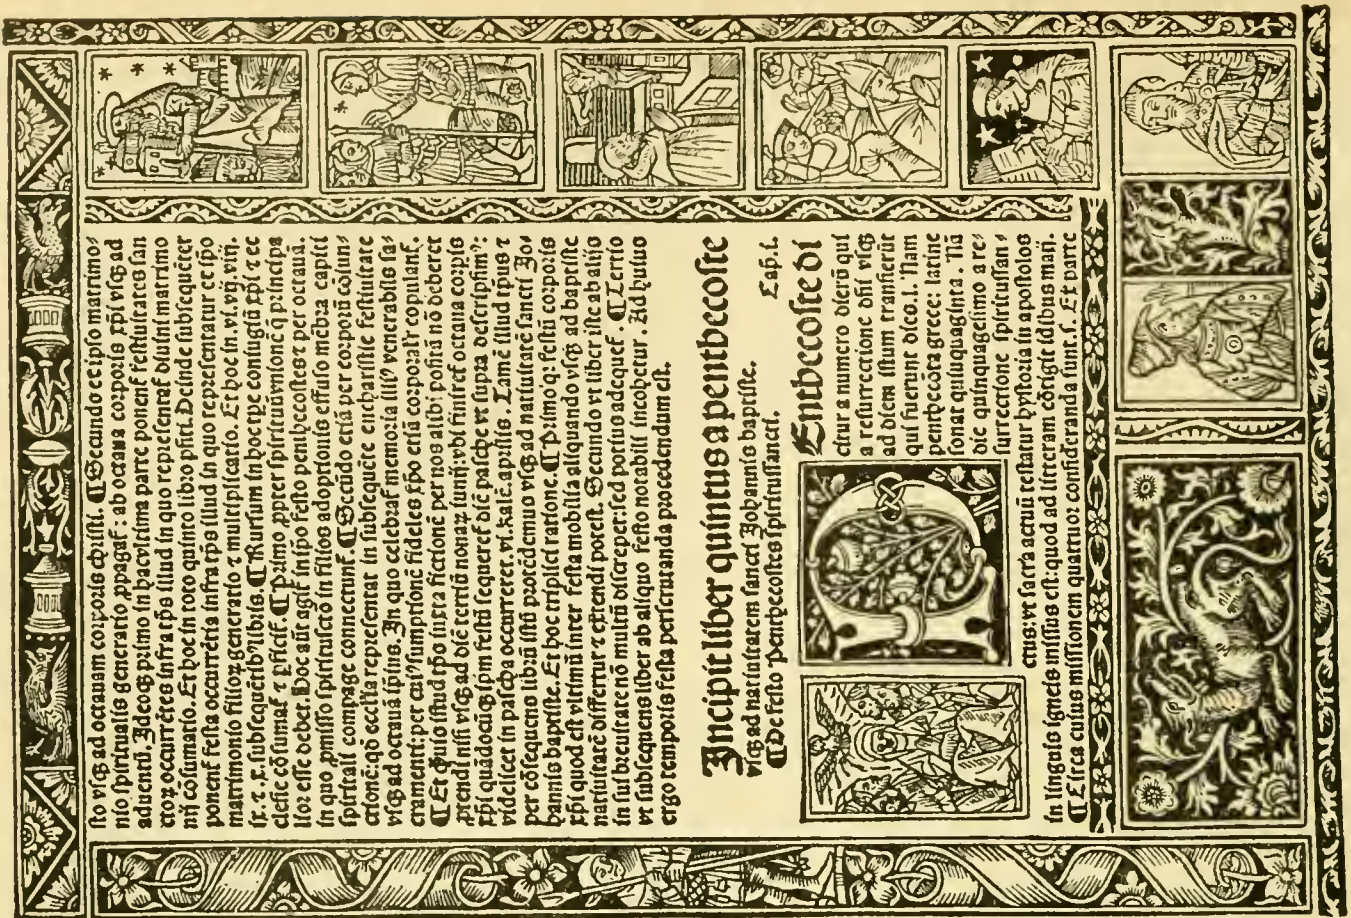 sto vsq̄ ad octauam corporis christi. ¶ Secundo et ipso matrimo⸗
nio spiritualis generatio ꝓpagaſ : ab octaua corporis xp̄i vsq̄ ad
aduentū. Ideoq̄ primo in hac vltima parte ponenſ festiuitates san
ctoꝝ occurrētes infra tp̄s illud in quo repesentaſ diuini matrimo
nij cōsumatio. Et hoc in toto quinto libro ꝓficī. Deinde subsequēter
ponenſ festa occurrētia infra tp̄s illud in quo representatur ex ip̄o
matrimonio filioꝝ generatio ⁊ multiplicatio. Et hoc in vi. vij. viij.
ix. ⁊. x. subsequētib⁹ libris. ¶ Rursum in hoc tp̄e coniugiū xp̄i ⁊ ec
clesie cōsumaſ ⁊ ꝑficiſ. ¶ Primo ꝓpter spirituāvnionē q̄ princips
lior esse debet. Hoc aūt agiſ in ip̄o festo penthecostes ⁊ per octauā.
in quo ꝓmisso spiritu scō in filios adoptionis effuso mēbra capiti
spirituali compage connectunſ. ¶ Secūdo etiā per corporū cōiun⸗
ctionē: qd̄ eccl̄ia representat in subsequēte eucharistie festiuitate
vsq̄ ad octauā ipsius. In quo celebraſ memoria illi⁹ venerabilis sa⸗
cramenti: per cui⁹ sumptionē fideles xp̄o etiā corporal'r copulanſ.
¶ Et q̄uis istud tp̄o iuxta fictionē per nos alibi positā nō deberet
ꝓtendi nisi vsq̄ ad diē tertiā nonaꝝ iunij: vbi finireſ octaua corporis
xp̄i quādocūq̄ ip̄m festū sequereſ diē pasche vt supra descripsim⁹:
videlicet in pascha occurrerer. vi. kal̄e. aprilis. Tamē illud tp̄us ⁊
per cōsequens librū istū producemus vsq̄ ad natiuitatē sancti Jo⸗
hannis baptiste. Et hoc triplici ratione. ¶ Primo q̇: festū corporis
xp̄i quod est vltimū inter festa mobilia aliquando vsq̄ ad baptiste
natiuitatē differtur ⁊ extendi potest. Secundo vt liber iste ab alijs
in sui breuitate nō multū discreper: sed potius adequeſ. ¶ Tertio
vt subsequens liber ab aliquo festo notabili incohetur. Ad huius
ergo temporis festa perscrutanda procedendum est.
Incipit liber quintus a penthecoste
vsq̄ ad natiuitatem sancti Johannis baptiste. Cap. i.
¶ De festo penthecostes spiritussancti.
PEnthecoste di
citur a numero dierū qui
a resurrectione dn̄i vsq̄
ad diem istum transierūt
qui fuerunt dico. l. Nam
penthecota grece: latine
sonat quinquaginta. Nā
die quinquagesimo a re⸗
surrectione spiritussan⸗
ctus: vt sacra actuū testatur hystoria in apostolos
in linguis igneis missus est: quod ad litteram cōtigit idibus maij.
¶ Circa cuius missionem quattuor consideranda sunt. s. Ex parte